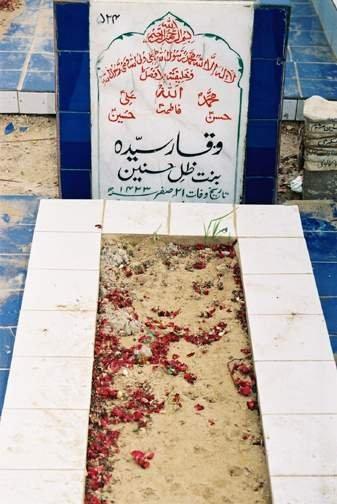 ۸۲۴
بسم اللہ الرحمن الرحیم
لا الہ الا اللہ محمد رسول اللہ علی ولی اللہ وصی رسول اللہ
و خلیفتہ بلا فصل
محمدؐ اللہ علیؑ
حسنؑ فاطمہؑ حسینؑ
وقار سیدہ
بنت ظلِ حسنین
تاریخ وفات ۲۱ صفر ۱۴۲۳ھ